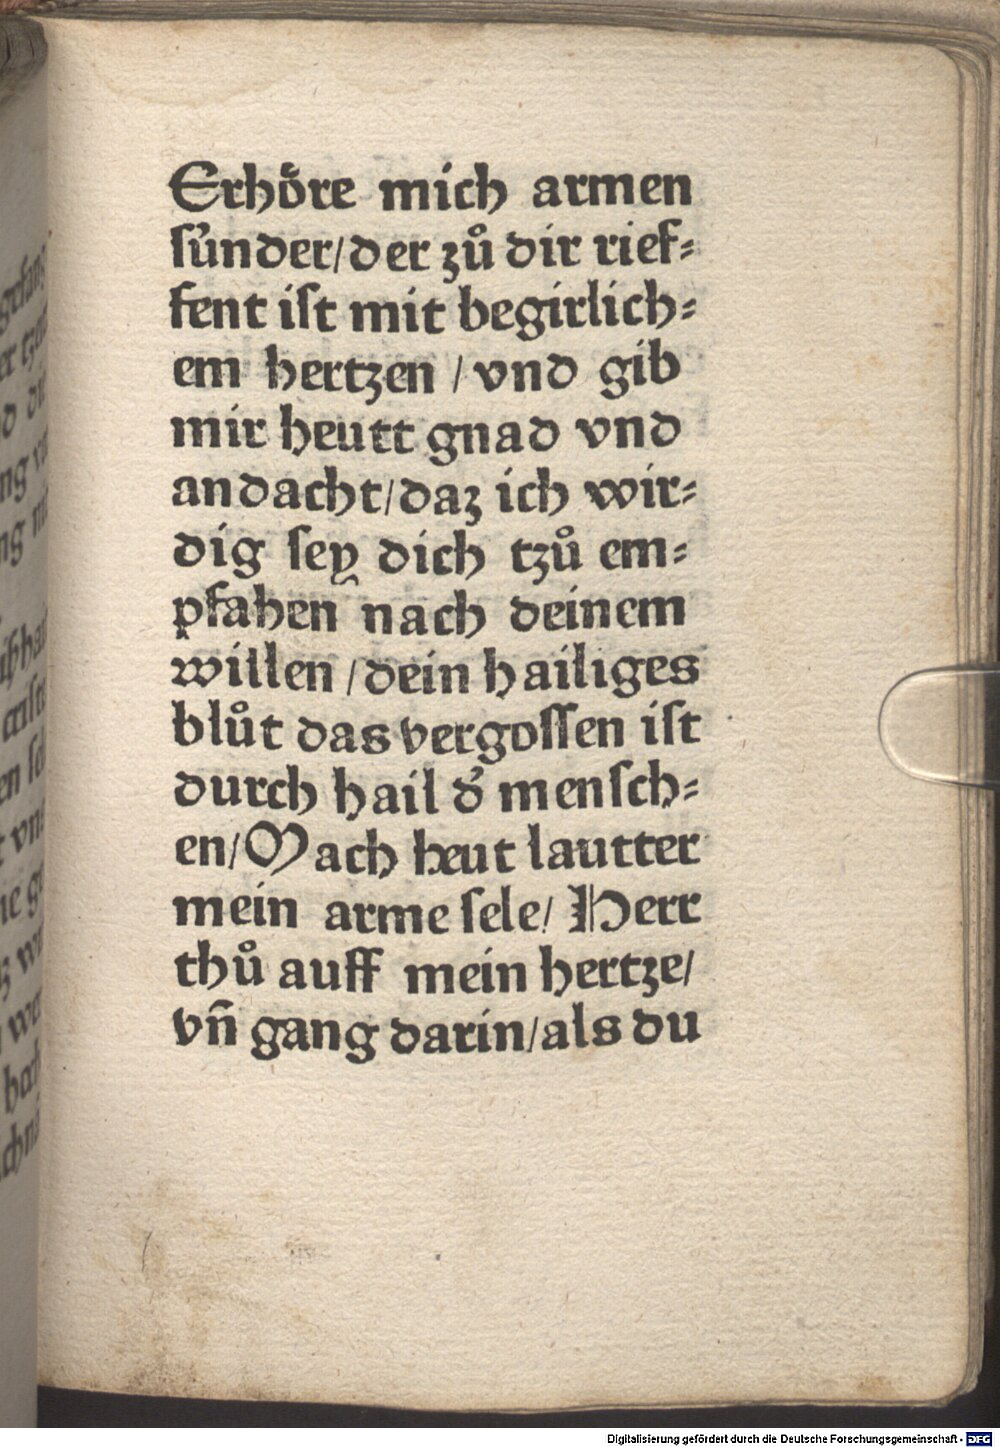 Erhoͤre mich armen
ſuͤnder/der zuͦ dir rief⸗
fent iſt mit begirlich⸗
em hertzen /vnd gib
mir heutt gnad vnd
andacht/daz ich wir⸗
dig ſey dich tzuͦ em⸗
pfahen nach deinem
willen /dein hailiges
bluͦt das vergoſſen iſt
durch hail dˀ menſch⸗
en/Mach heut lautter
mein arme ſele/ Herr
thuͦ auff mein hertze/
vn̄ gang darin/als du
Digitalisierung gefördert durch die Deutsche Forschungsgemeinschaft - DFG